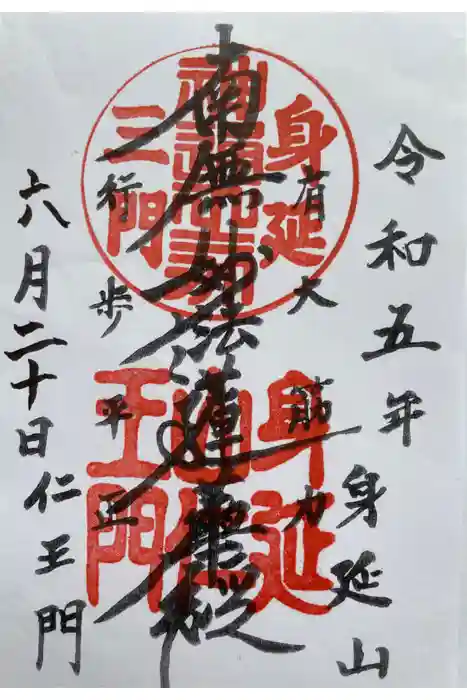 令和五年
身延山
有大筋力
南無妙法蓮華経
行歩平正
六月二十日
仁王門
身延
三門
身延山
仁王門